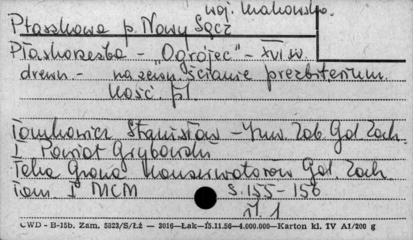 woj. krakowskie.
Ptaszkowa p. Nowy Sącz
Płaskorzeźba - "Ogrojec" - XVI w.
drewn. - na zewn. ścianie prezbiterium.
kość. pl.
Tomkowicz Stanisław - Inw. Zab. Gal. Zach.
I Powiat Grybowski
Teka Grona Konserwatorów Gal. Zach.
Tom. I MCM s. 155-156
il. 1
CWD - B-15b. Zam. 5823/S/Łż — 2016—Łak—15.11.56—4.000.000—Karton kl. IV A1/200 g